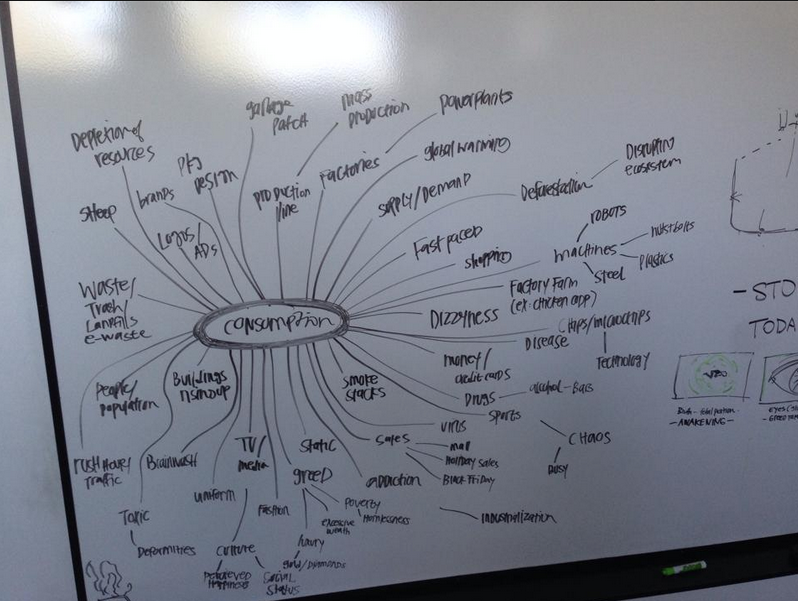 garbage
patch
mass
production
powerplants
Depletion of
resources
PKG
DESIGN
brands
production
line
Factories
global warming
supply/Demand
Deforestation
Disrupting
ecosystem
sheep
Logos/
ADs
Fast paced
shopping
machines
robots
nuts+bolts
plastics
steel
Factory Farm
(ex: chicken app)
Waste/
Trash/
Landfills
e-waste
consumption
Dizzyness
Chips/microchips
Technology
DISEASE
money/
credit cards
Drugs
alcohol - Bars
sports
CHAOS
Busy
virus
smoke
stacks
sales
mall
Holiday sales
Black Friday
people/
population
Buildings
rising up
rush hour/
traffic
Brainwash
TV/
media
static
greed
addiction
Toxic
Deformities
uniform
culture
perceived
Happiness
social
status
Fashion
Poverty
Homelessness
excessive
wealth
luxury
gold/Diamonds
industrialization
- STO
TODA
AWAKENING -